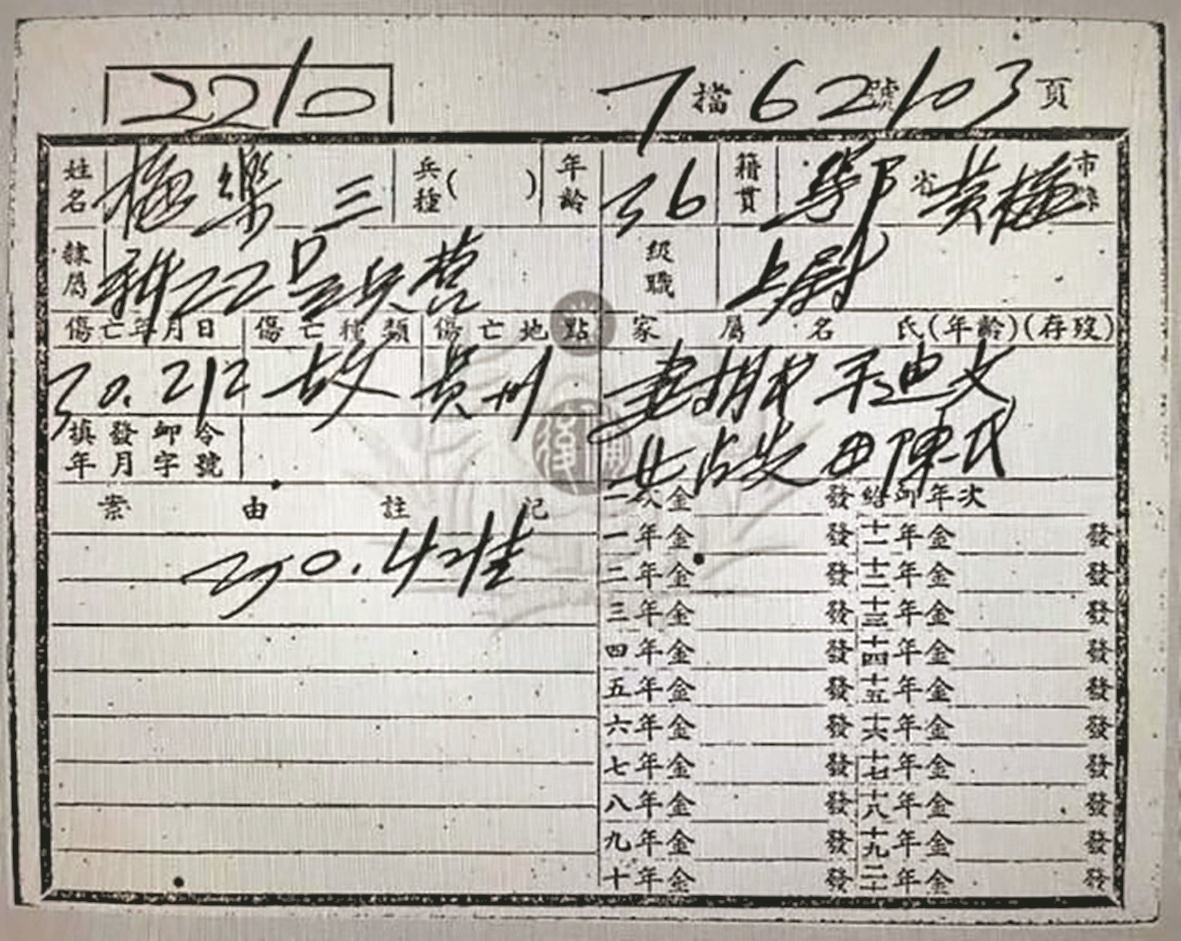 2210
7檔62號103頁
姓名 樂三 兵種( ) 年齡 36 籍貫 鄂省黃梅市縣
隸屬 新22 兵營 級職 上尉
傷亡年月日 傷亡種類 傷亡地點 家屬名氏(年齡)(存歿)
30.2.12 故 貴州 妻胡氏 子迪文
女 母陳氏
填發卹令年月字號
案由註記 一次金 發給卹年次
30.4
一年金 發 十一年金 發
二年金 發 十二年金 發
三年金 發 十三年金 發
四年金 發 十四年金 發
五年金 發 十五年金 發
六年金 發 十六年金 發
七年金 發 十七年金 發
八年金 發 十八年金 發
九年金 發 十九年金 發
十年金 發 二十年金 發